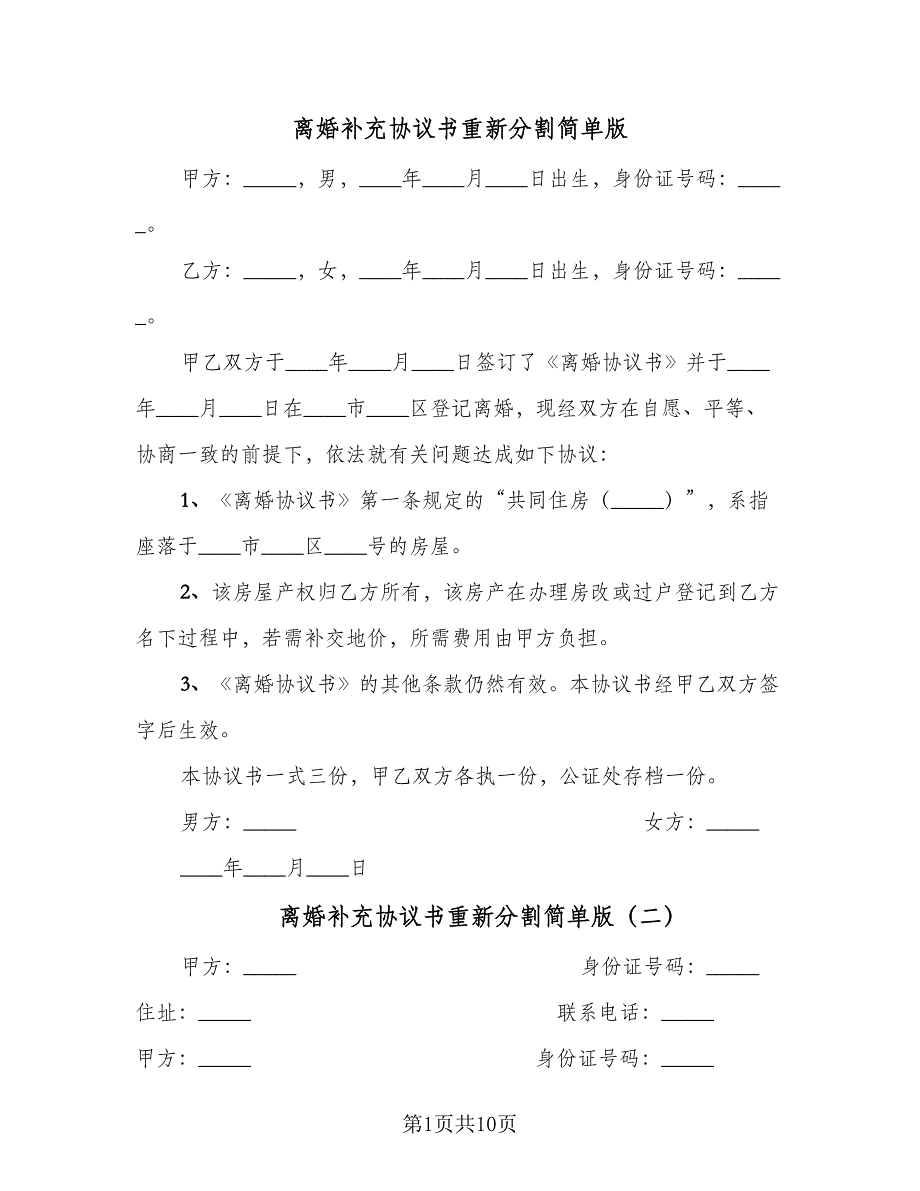 离婚补充协议书重新分割简单版
甲方：_____，男，____年____月____日出生，身份证号码：____
_。
乙方：_____，女，____年____月____日出生，身份证号码：____
_。
甲乙双方于____年____月____日签订了《离婚协议书》并于____
年____月____日在____市____区登记离婚，现经双方在自愿、平等、
协商一致的前提下，依法就有关问题达成如下协议：
1、《离婚协议书》第一条规定的“共同住房（_____）”，系指
座落于____市____区____号的房屋。
2、该房屋产权归乙方所有，该房产在办理房改或过户登记到乙方
名下过程中，若需补交地价，所需费用由甲方负担。
3、《离婚协议书》的其他条款仍然有效。本协议书经甲乙双方签
字后生效。
本协议书一式三份，甲乙双方各执一份，公证处存档一份。
男方：_____ 女方：_____
____年____月____日
离婚补充协议书重新分割简单版（二）
甲方：_____ 身份证号码：_____
住址：_____ 联系电话：_____
甲方：_____ 身份证号码：_____
第1页共10页